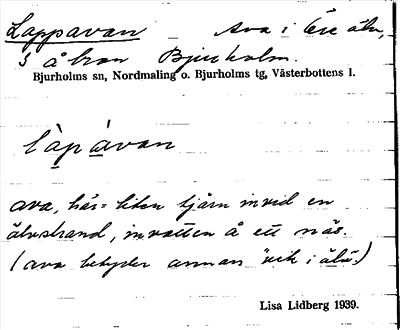 Lappavan Ava i Öre älv,
S å från Bjurholm.
Bjurholms sn, Nordmaling o. Bjurholms tg, Västerbottens l.
låpàvan
ava, här = liten tjärn invid en
älvstrand, invatten å ett näs.
(ava betyder annars "vik i älv".)
Lisa Lidberg 1939.